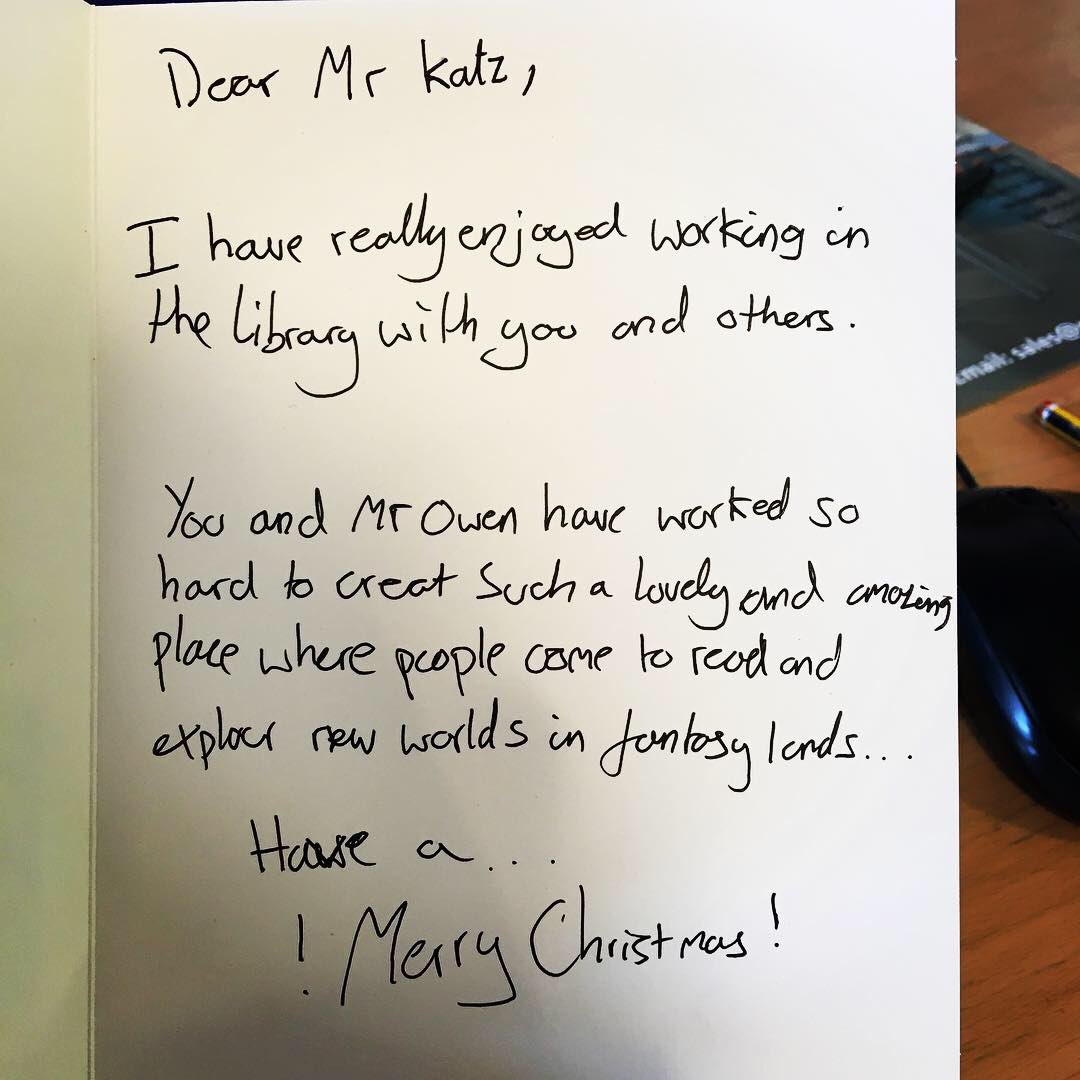 Dear Mr Katz,
I have really enjoyed working in
the library with you and others.
You and Mr Owen have worked so
hard to creat Such a lovely and amazing
place where people come to read and
exploer new worlds in fantasy lands...
Have a...
! Merry Christmas !
email: sales@